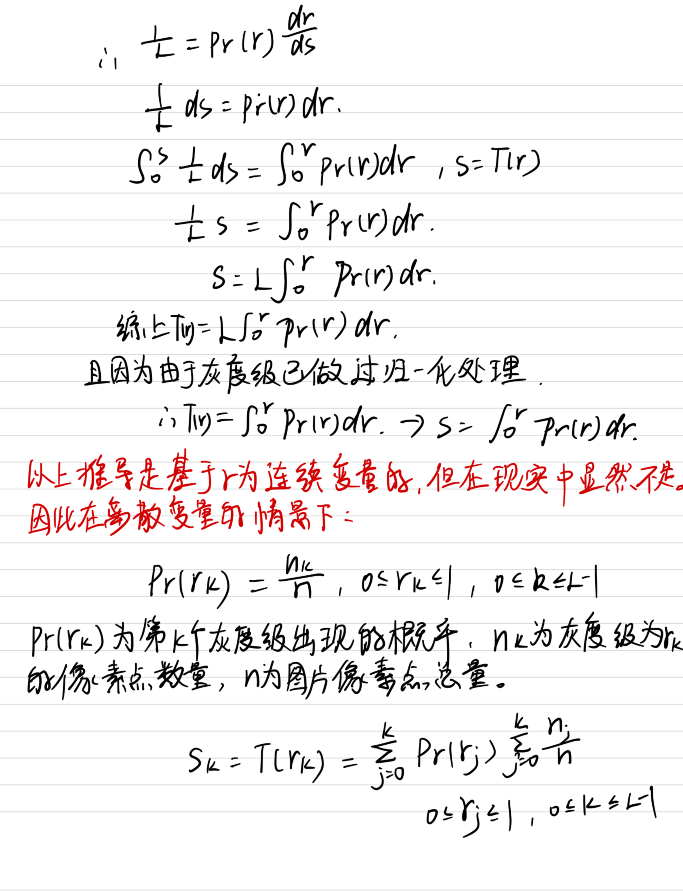 ∴ 1/L = Pr(r) dr/ds
1/L ds = Pr(r) dr.
∫₀ˢ 1/L ds = ∫₀ʳ Pr(r)dr , s=T(r)
1/L s = ∫₀ʳ Pr(r) dr.
S = L∫₀ʳ Pr(r) dr.
综上T(r)= L∫₀ʳ Pr(r) dr.
且因为由于灰度级已做过归一化处理.
∴ T(r)= ∫₀ʳ Pr(r)dr. → S = ∫₀ʳ Pr(r) dr.
以上推导是基于r为连续变量的,但在现实中显然不是。
因此在离散变量的情景下:
Pr(rₖ) = nₖ/n , 0≤rₖ≤1 , 0≤k≤L-1
Pr(rₖ)为第k个灰度级出现的概率. nₖ为灰度级为rₖ
的像素点数量, n为图片像素点总量。
Sₖ = T(rₖ) = ∑ⱼ₌₀ᵏ Pr(rⱼ) ∑ⱼ₌₀ᵏ nⱼ/n
0≤rⱼ≤1 , 0≤k≤L-1